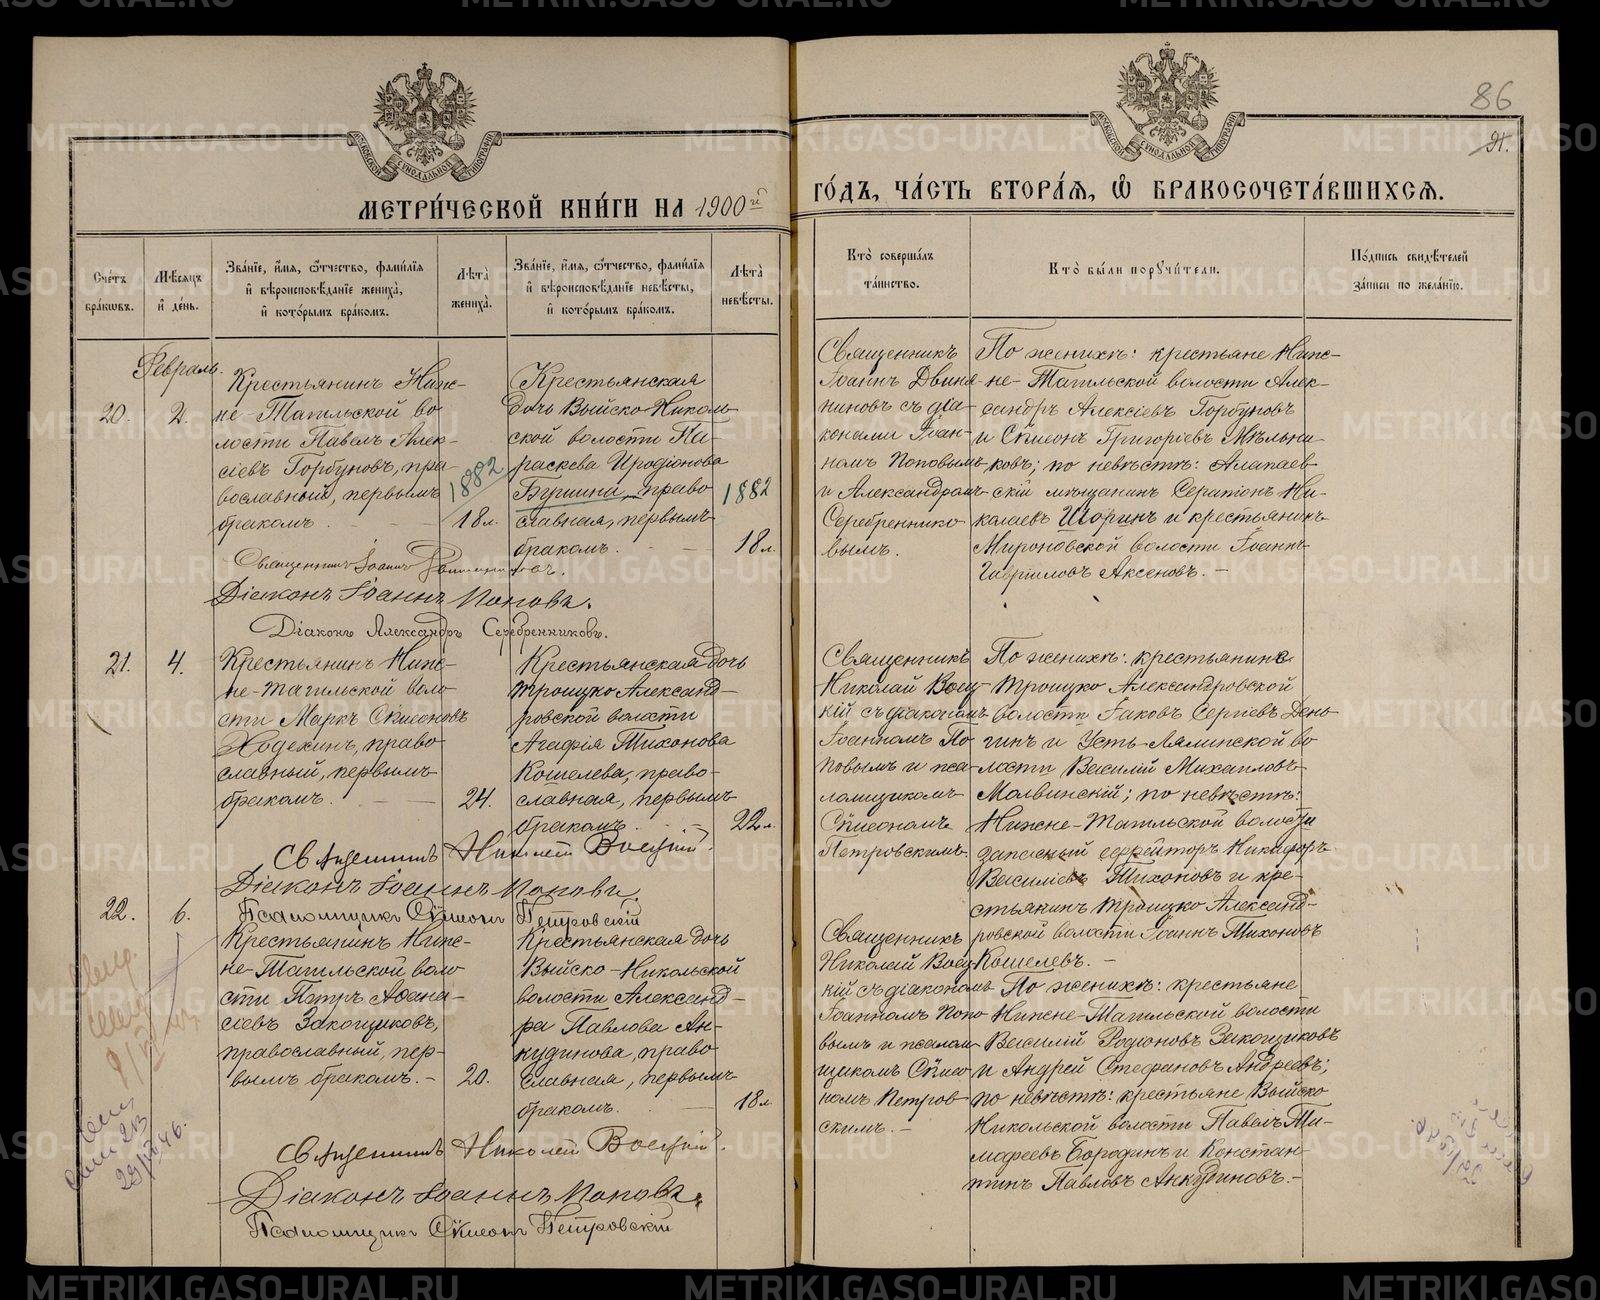 86
91.
МОСКОВСКОЙ СѴНОДАЛЬНОЙ ТИПОГРАФІИ
МОСКОВСКОЙ СѴНОДАЛЬНОЙ ТИПОГРАФІИ
МЕТРИ́ЧЕСКОЙ КНИ́ГИ НА 1900й
ГО́ДЪ, ЧА́СТЬ ВТОРА́Я, Ѽ БРАКОСОЧЕТА́ВШИХСЯ.
Сче́тъ бра́кѡвъ.
Мѣ́сяцъ и҆ де́нь.
Зва́нїе, и҆́мя, ѻ҆́тчество, фами́лїя и҆ вѣроисповѣ́данїе жениха̀, и҆ кото́рымъ бра́комъ.
Лѣта̀ жениха̀.
Зва́нїе, и҆́мя, ѻ҆́тчество, фами́лїя и҆ вѣроисповѣ́данїе невѣ́сты, и҆ кото́рымъ бра́комъ.
Лѣта̀ невѣ́сты.
Кто̀ соверша́лъ та́инство.
Кто̀ бы́ли порꙋчи́тели.
По́дпись свидѣ́телей за́писи по жела́нїю.
Февраль.
20.
2.
Крестьянинъ Ниж-
не-Тагильской во
лости Павелъ Алек-
сіевъ Горбуновъ, пра-
вославный, первымъ
бракомъ.
1882
18 л.
Крестьянская
дочь Выйско-Николь
ской волости Па-
раскева Иродіонова
Бушина, право
славная, первымъ
бракомъ.
1882
18 л.
Священникъ
Іоаннъ Двиня-
ниновъ съ діа-
конами Іоан-
номъ Поповымъ
и Александромъ
Серебреннико-
вымъ.
По женихѣ: крестьяне Ниж-
не-Тагильской волости Алек-
сандръ Алексіевъ Горбуновъ
и Сѵмеонъ Григоріевъ Мѣльни-
ковъ; по невѣстѣ: Алапаев-
скій мѣщанинъ Серапіонъ Ни-
колаевъ Шоринъ и крестьянинъ
Мироновской волости Іоаннъ
Гавріиловъ Аксеновъ. -
Священникъ Іоаннъ
Діаконъ Іоаннъ Поповъ.
Діаконъ Александръ Серебренниковъ.
21.
4.
Крестьянинъ Ниж-
не-Тагильской воло
сти Маркъ Сѵмеоновъ
Ходекинъ, право
славный, первымъ
бракомъ.
24.
Крестьянская дочь
Троицко Александ-
ровской волости
Агафія Тихонова
Кошелева, право-
славная, первымъ
бракомъ.
22 л.
Священникъ
Николай Воец-
кій съ діакономъ
Іоанномъ По
повымъ и пса-
ломщикомъ
Сѵмеономъ
Петровскимъ.
По женихѣ: крестьянинъ
Троицко Александровской
волости Іаковъ Сергіевъ День-
гинъ и Усть-Лялинской во
лости Василій Михаиловъ
Мальвинскій; по невѣстѣ:
Нижне-Тагильской волости
запасный ефрейторъ Никифоръ
Василіевъ Тихоновъ и кре-
стьянинъ Троицко Александ-
ровской волости Іоаннъ Тихоновъ
Кошелевъ. -
Священникъ Николай Воецкій.
Діаконъ Іоаннъ Поповъ.
Псаломщикъ Сѵмеонъ Петровскій
22.
6.
Крестьянинъ Ниж-
не-Тагильской воло
сти Петръ Афана-
сіевъ Закощиковъ,
православный, пер-
вымъ бракомъ. -
20.
Крестьянская дочь
Выйско-Никольской
волости Александ-
ра Павлова Ан-
кудинова, право
славная, первымъ
бракомъ.
18 л.
Священникъ
Николай Воец
кій съ діакономъ
Іоанномъ Попо
вымъ и псалом
щикомъ Сѵмео-
номъ Петров-
скимъ. -
По женихѣ: крестьяне
Нижне-Тагильской волости
Василій Родіоновъ Закощиковъ
и Андрей Стефановъ Андреевъ;
по невѣстѣ: крестьяне Выйско
Никольской волости Павелъ Ти-
мофеевъ Бородинъ и Констан-
тинъ Павловъ Анкудиновъ. -
Священникъ Николай Воецкій.
Діаконъ Іоаннъ Поповъ.
Псаломщикъ Сѵмеонъ Петровскій
METRIKI.GASO-URAL.RU